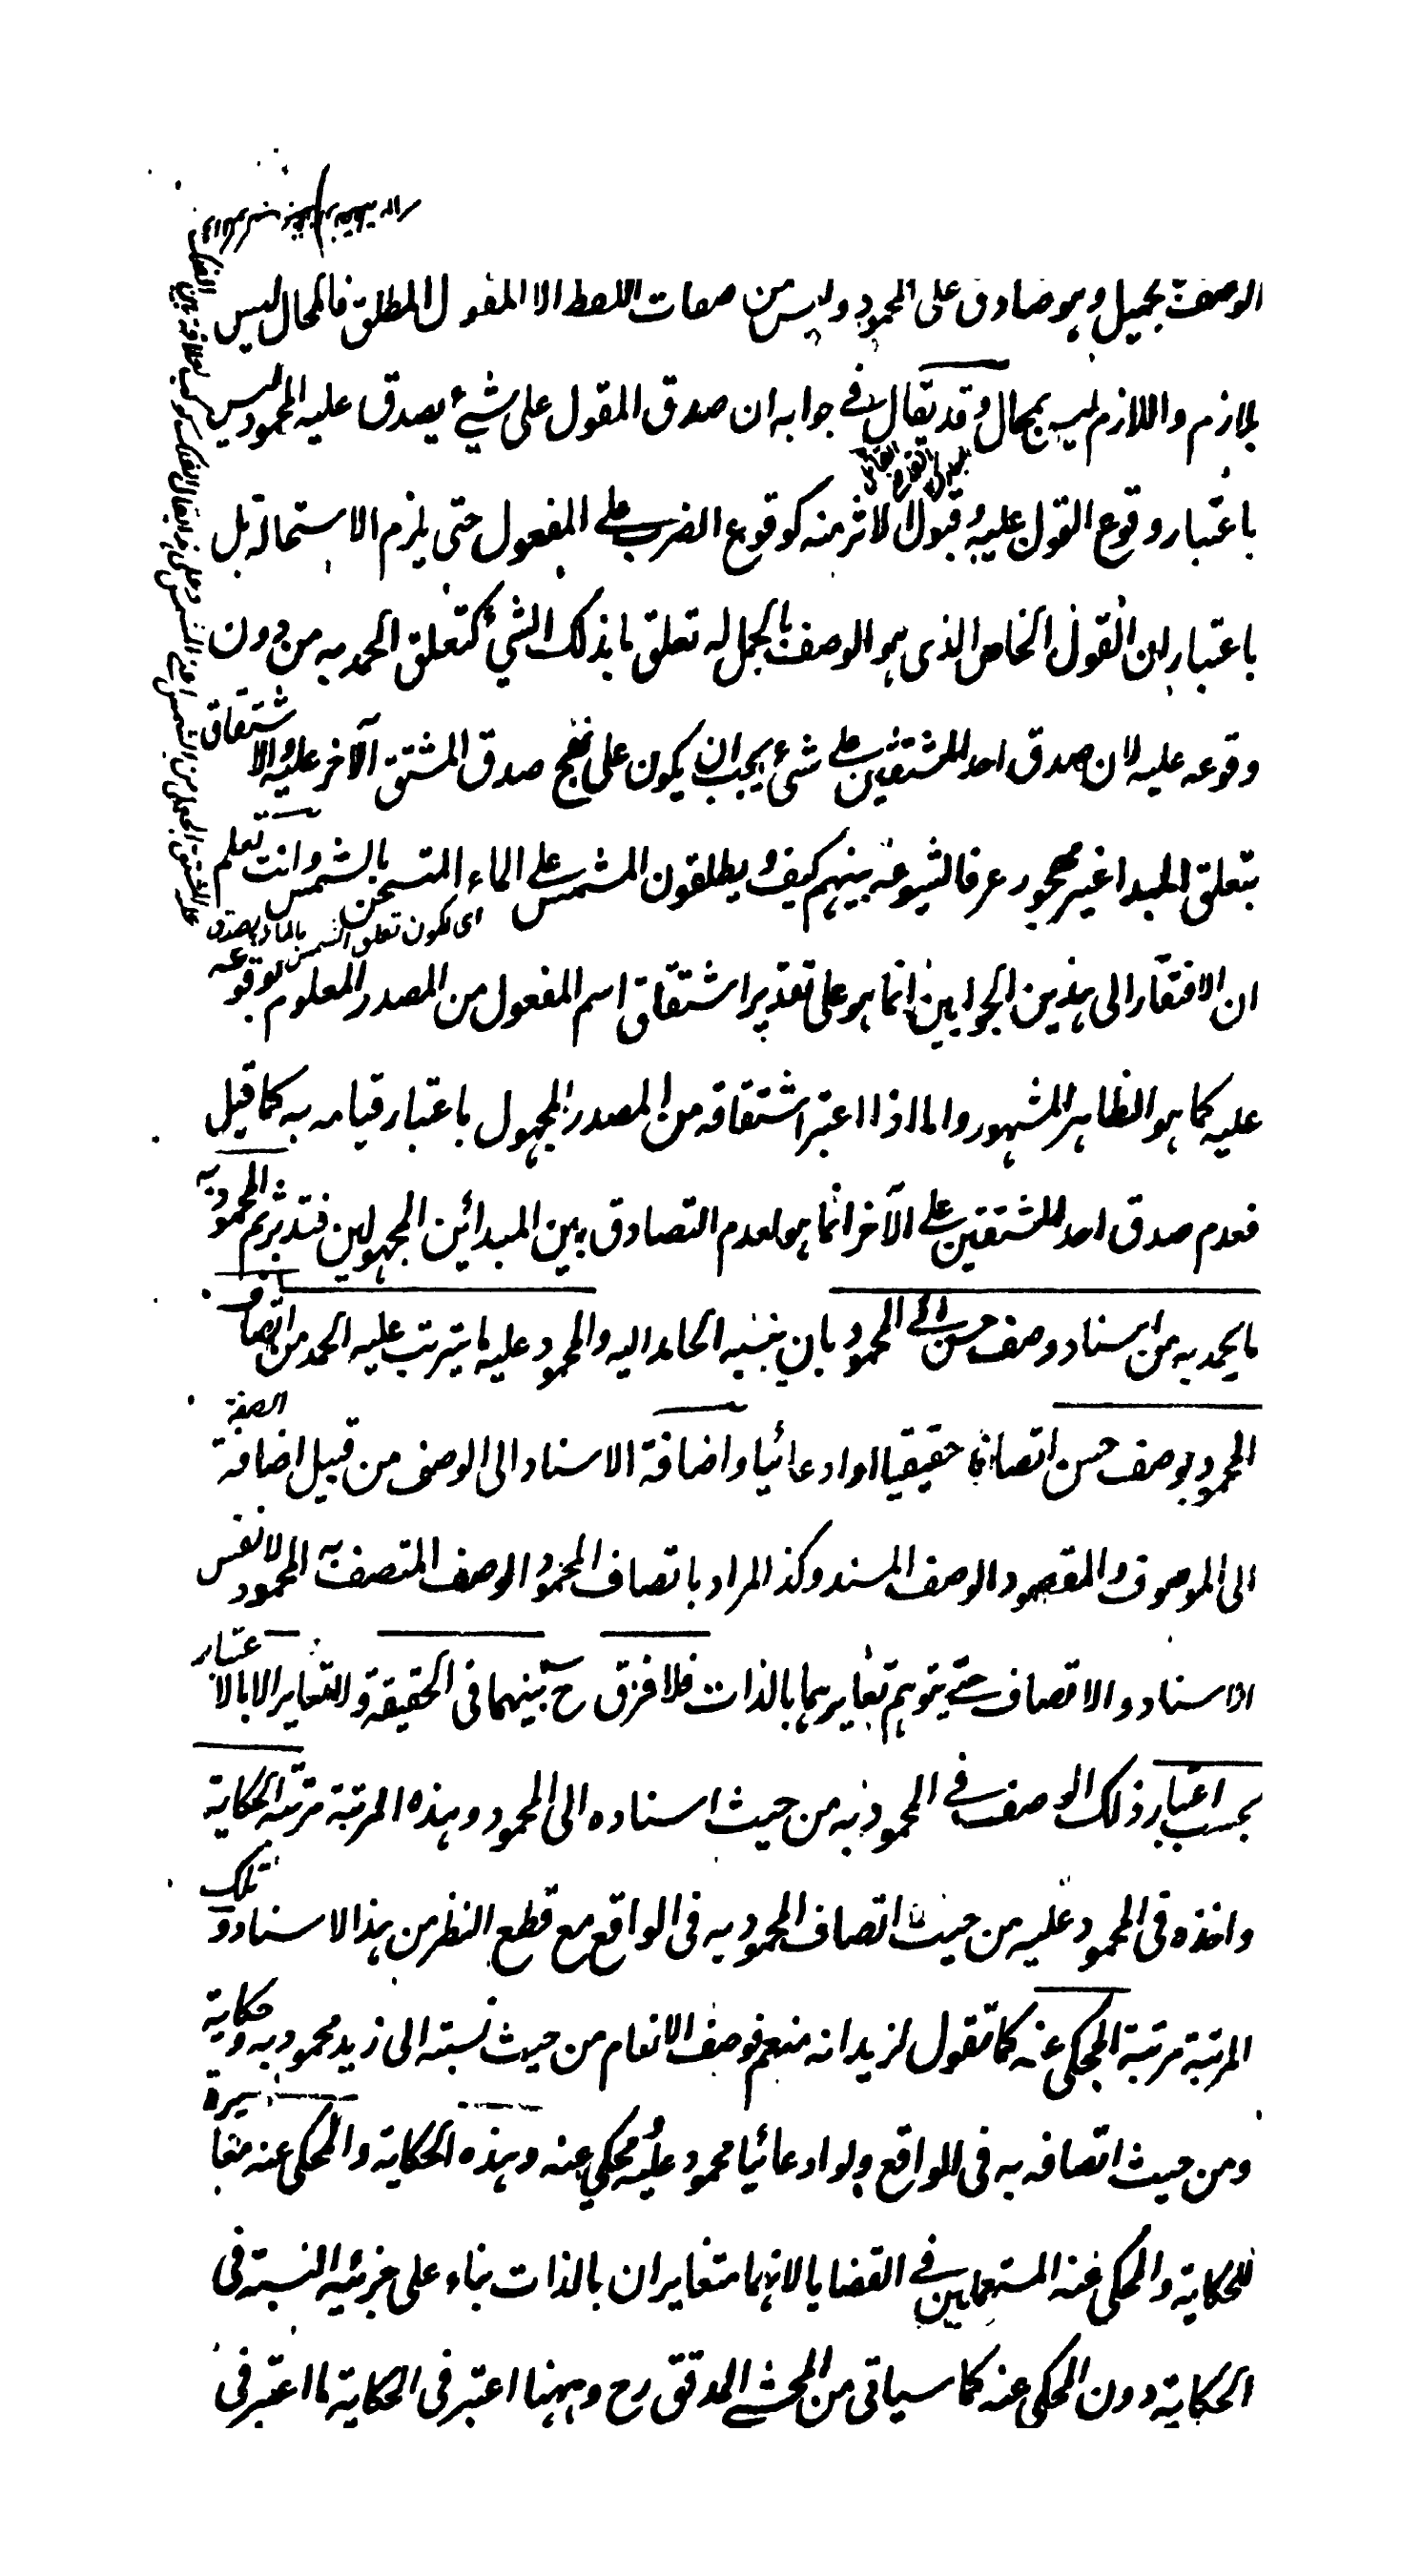 الوصف بجميل وهو صادق على المحمود وليس من صفات اللفظ الا المقول المطلق فالمحال ليس
بلازم واللازم ليس بمحال وقد يقال في جوابه ان صدق المقول على شيء يصدق عليه المحمود ليس
باعتبار وقوع القول عليه وقبول الاثر منه كوقوع الضرب على المفعول حتى يلزم الاستحالة بل
باعتبار ان القول الخاص الذى هو الوصف بالجميل له تعلق ما بذلك الشيء كتعلق الحمد به من دون
وقوعه عليه لان صدق احد المشتقين على شيء يجب ان يكون على نهج صدق المشتق الآخر عليه والاشتقاق
بتعلق المبدا غير مهجور عرفا لشيوعه بينهم كيف و يطلقون المشمس على الماء المتسخن بالشمس وانت تعلم
اى لكون تعلق الشمس بالماء
ان الافتقار الى هذين الجوابين انما هو على تقدير اشتقاق اسم المفعول من المصدر المعلوم لوقوعه
عليه كما هو الظاهر المشهور واما اذا اعتبر اشتقاقه من المصدر المجهول باعتبار قيامه به كما قيل
فعدم صدق احد المشتقين على الآخر انما هو لعدم التصادق بين المبدائين المجهولين فتدبر ثم المحمود به
ما يحمد به من اسناد وصف حسن الى المحمود بان ينسبه الحامد اليه والمحمود عليه ما يترتب عليه الحمد من اتصاف
المحمود بوصف حسن اتصافا حقيقيا او ادعائيا واضافة الاسناد الى الوصف من قبيل اضافة الصفة
الى الموصوف والمقصود الوصف المسند وكذا المراد باتصاف المحمود الوصف المتصف به المحمود لا نفس
الاسناد والاتصاف حتى يتوهم تغايرهما بالذات فلا فرق ح بينهما فى الحقيقة والتغاير الا بالاعتبار
بحسب اعتبار ذلك الوصف في المحمود به من حيث اسناده الى المحمود وهذه المرتبة مرتبة الحكاية
واخذه فى المحمود عليه من حيث اتصاف المحمود به فى الواقع مع قطع النظر من هذا الاسناد و تلك
المرتبة مرتبة المحكى عنه كما تقول لزيد انه منعم فوصف الانعام من حيث نسبته الى زيد محمود به وحكاية
ومن حيث اتصافه به فى الواقع ولو ادعائيا محمود عليه محكى عنه وهذه الحكاية والمحكى عنه مغايرة
للحكاية والمحكى عنه المستعملين في القضايا لانهما متغايران بالذات بناء على جزئية النسبة فى
الحكاية دون المحكى عنه كما سياتى من المحشى المدقق رح وههنا اعتبر فى الحكاية ما اعتبر فى